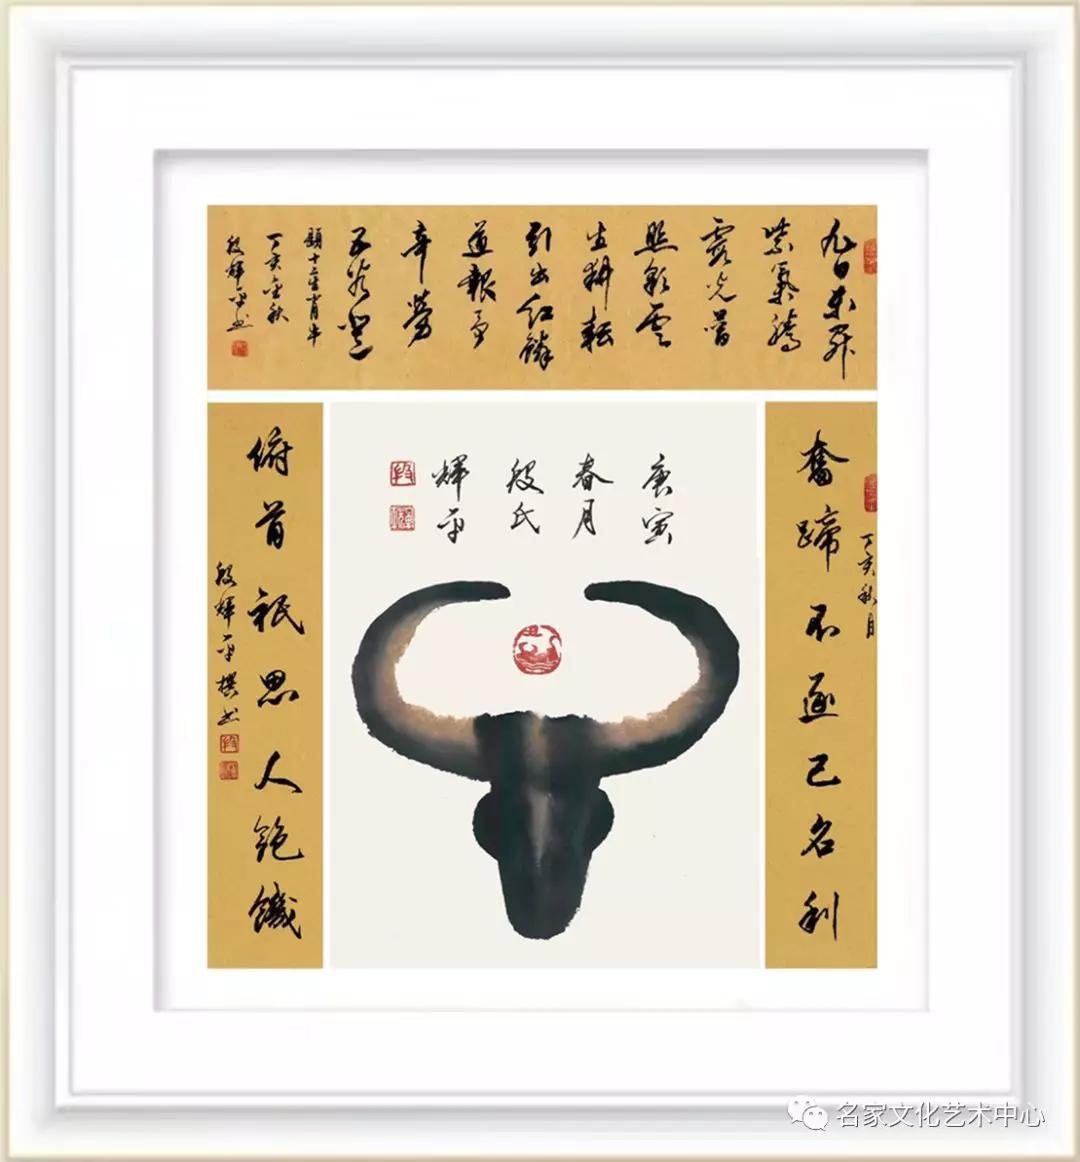 九日东升
紫氣騰
霞光普
照彩雲
生耕耘
引出红鳞
道報予
辛勞
五谷登
題十二生肖牛
丁亥金秋
殷輝平书
丁亥秋月
奮蹄不逐己名利
庚寅
春月
殷氏
輝平
俯首祇思人飽饑
殷輝平撰书
名家文化艺术中心